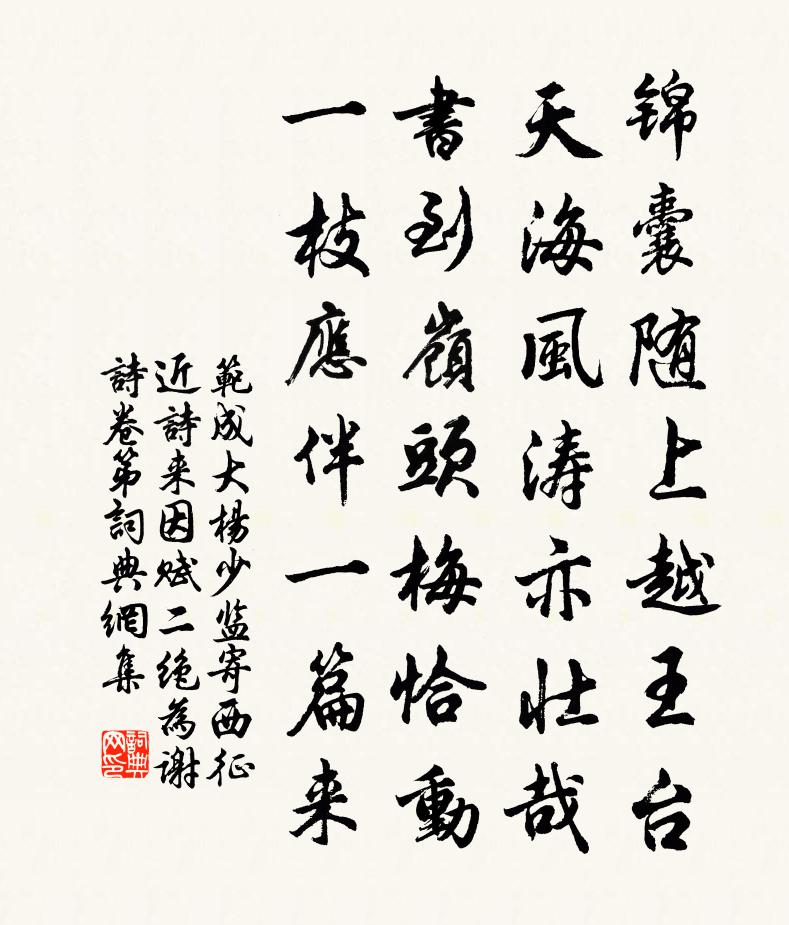 锦囊随上越王台
天海風涛亦壮哉
書到嶺頭梅恰動
一枝應伴一篇来
範成大楊少监寄西征
近詩来因赋二绝為謝
詩卷第詞典網集
詞典
网印